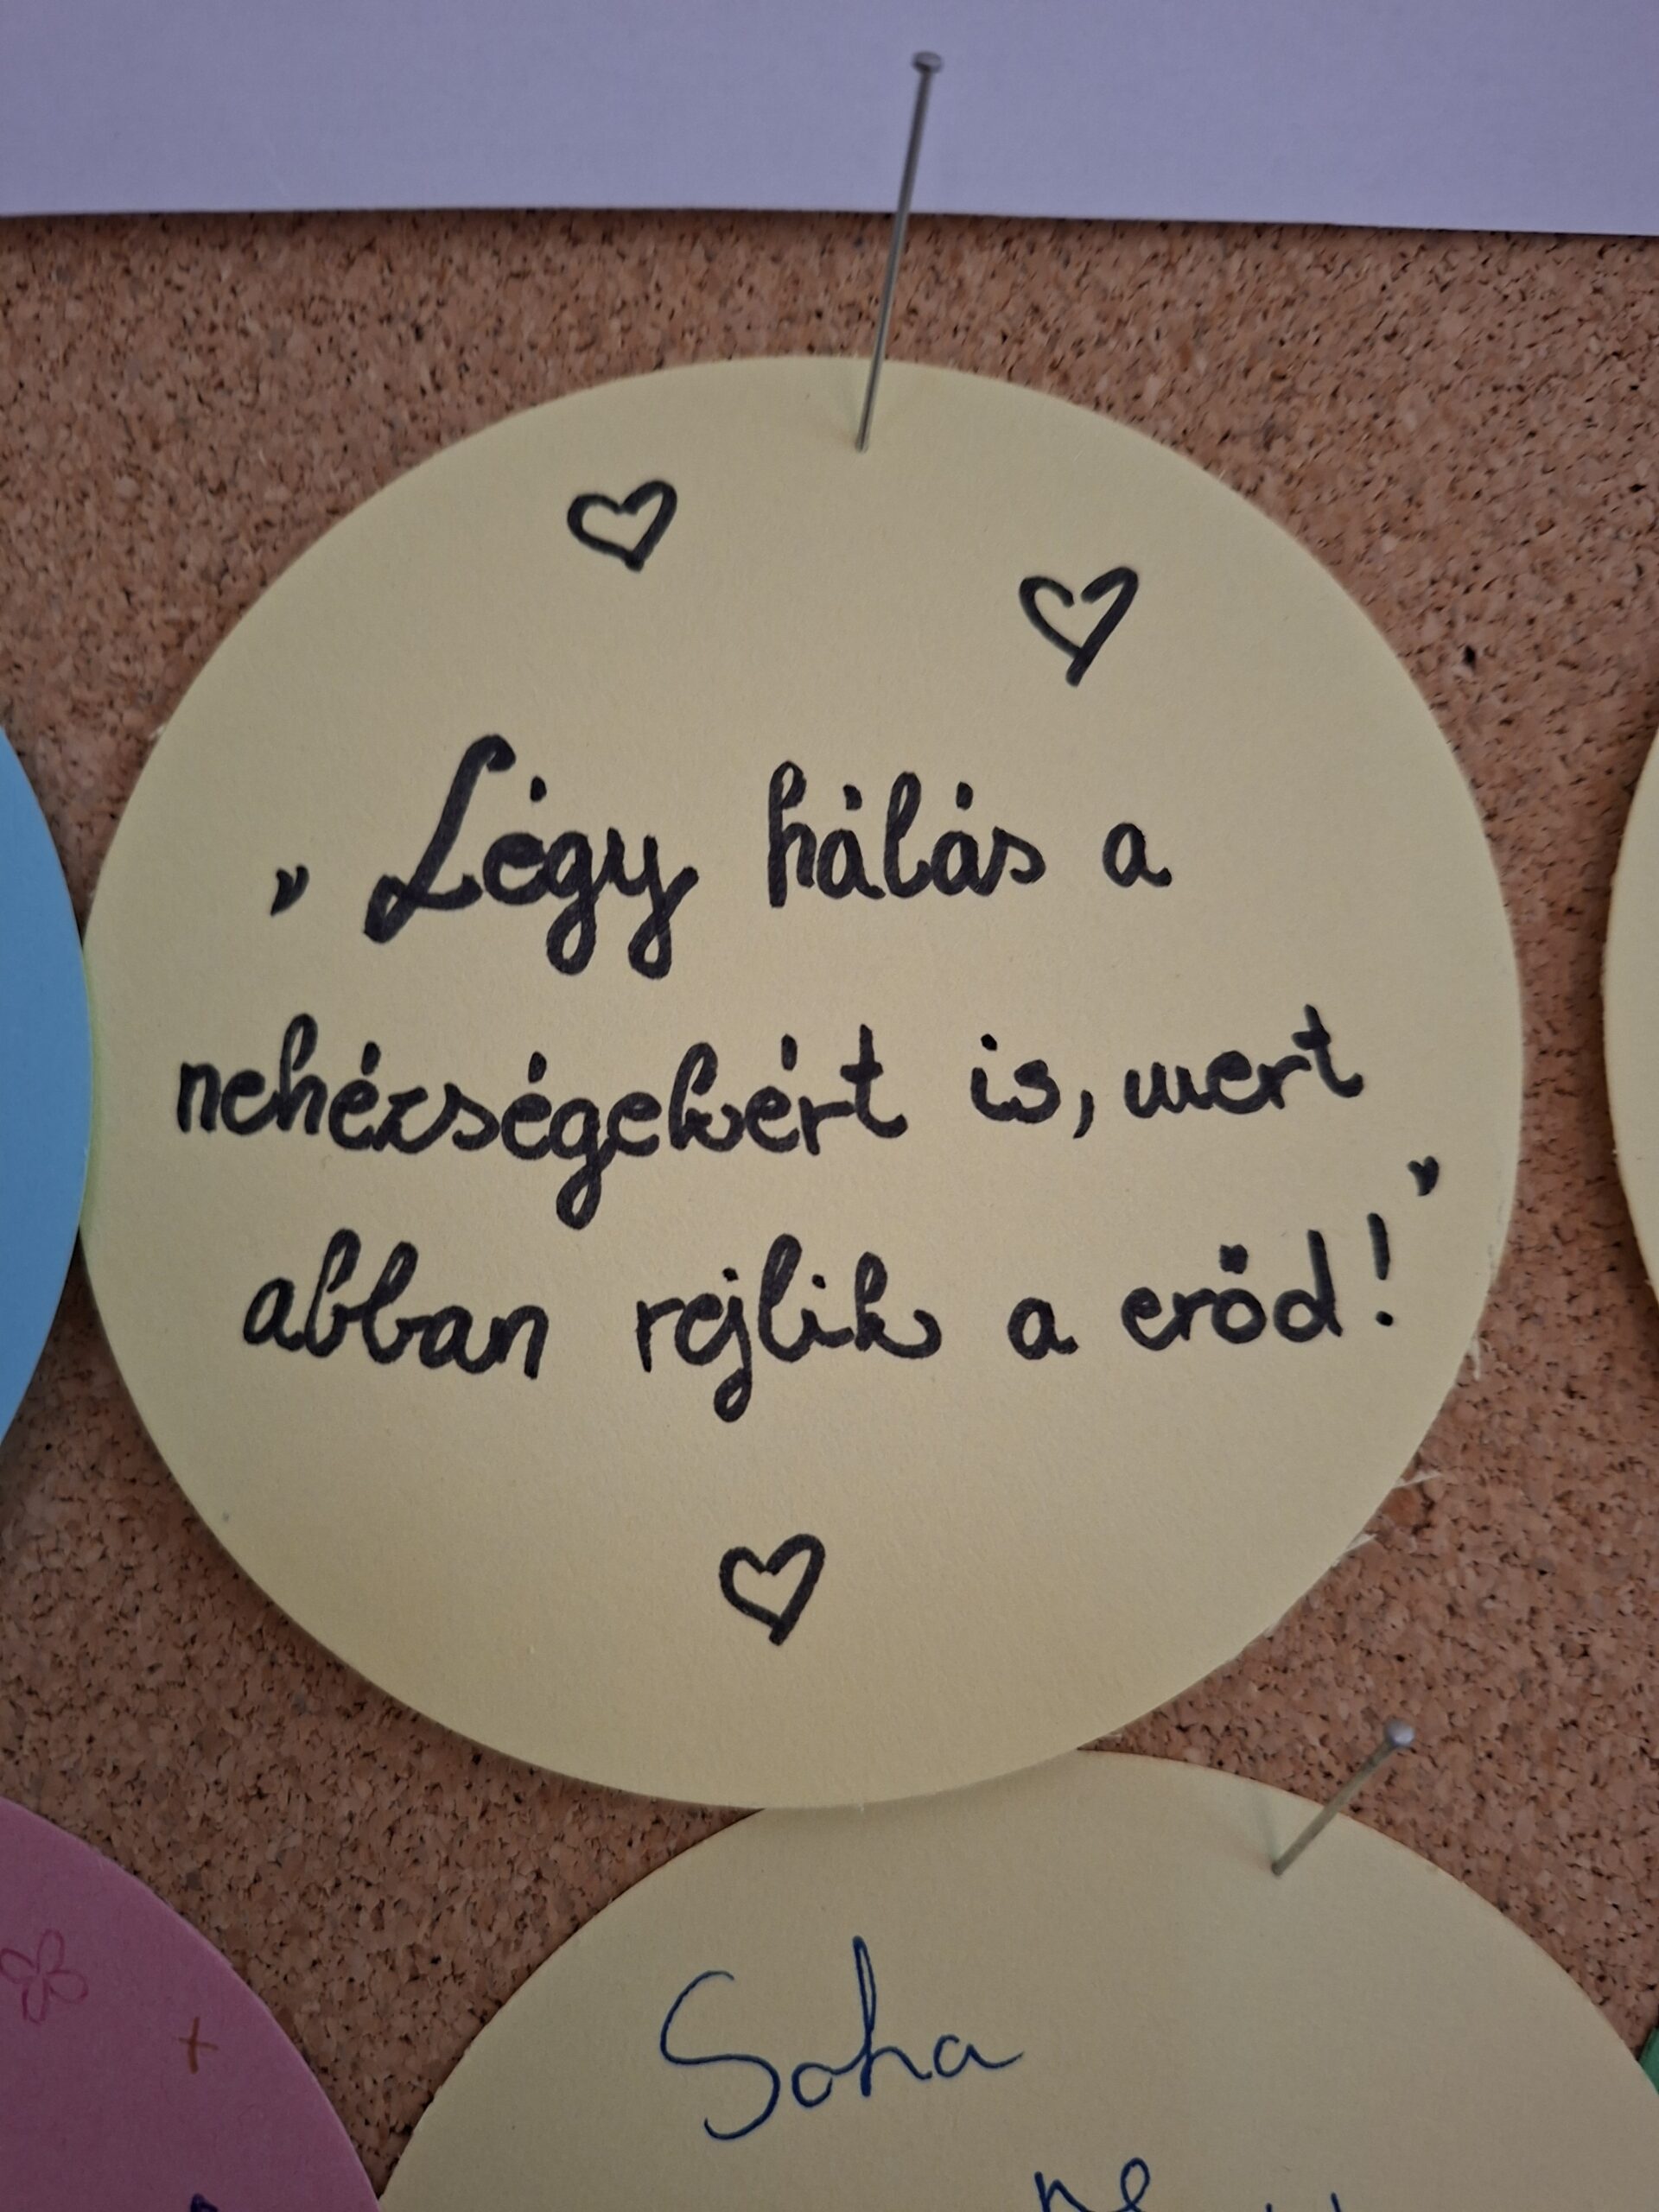 „Légy hálás a
nehézségekért is, mert
abban rejlik a erőd!”
Soha
ne